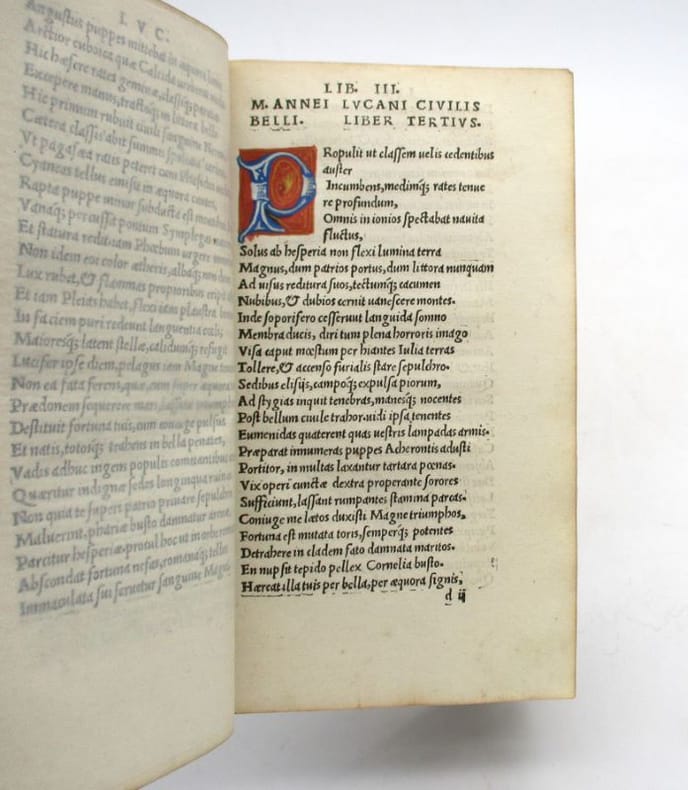 LVC.
Augustus puppes mittebat in æquora
Arctior euboica quæ Calcida uerberat
Hic hæsere rates geminæ, classiq; paratas
Excepere manus, tractoq; in littora bello
Hic primum rubuit ciuili sanguine Nereus
Cætera classis abit summis spoliata
Vt pagasæa ratis peteret cum Phasidos
Cyaneas tellus emisit in æquora cautes,
Rapta puppe minor subducta est montibus
Vanaq; percussit pontum Symplegas
Et statura redit. iam Phœbum urgere
Non idem eoi color ætheris, albaq;
Lux rubet, & flammas propioribus eripit
Et iam Pleias hebet, flexi iam plaustra
In faciem puri redeunt languentia cœli,
Maioresq; latent stellæ, calidumq; refugit
Lucifer ipse diem, pelagus iam Magne
Non ea fata ferens, quæ, cum super æquora
Prædonem sequerere
Destituit fortuna tuis, cum coniuge pulsus
Et natis, totosq; trahens in bella penates,
Vadis adhuc ingens populis comitantibus
Quæritur indignæ sedes longinqua ruinæ
Non quia te superi patrio priuare sepulchro
Maluerint, phariæ busto damnatur arenæ,
Parcitur hesperiæ, procul hoc ut in orbe
Abscondat fortuna nefas, romanaq; tellus
Immaculata sui seruetur sanguine Magni
LIB. III.
M. ANNEI LVCANI CIVILIS
BELLI. LIBER TERTIVS.
PRopulit ut classem uelis cedentibus
auster
Incumbens, mediumq; rates tenue
re profundum,
Omnis in ionios spectabat nauita
fluctus,
Solus ab hesperia non flexi lumina terra
Magnus, dum patrios portus, dum littora nunquam
Ad uisus reditura suos, tectumq; cacumen
Nubibus, & dubios cernit uanescere montes.
Inde soporifero cesserunt languida somno
Membra ducis, diri tum plena horroris imago
Visa caput mœstum per hiantes Iulia terras
Tollere, & accenso furialis stare sepulchro.
Sedibus elisijs, campoq; expulsa piorum,
Ad stygias inquit tenebras, manesq; nocentes
Post bellum ciuile trahor. uidi ipsa tenentes
Eumenidas quaterent quas uestris lampadas armis.
Præparat innumeras puppes Acherontis adusti
Portitor, in multas laxantur tartara pœnas.
Vix operi cunctæ dextra properante sorores
Sufficiunt, lassant rumpantes stamina parcas.
Coniuge me lætos duxisti Magne triumphos,
Fortuna est mutata toris, semperq; potentes
Detrahere in cladem fato damnata maritos.
En nupsit tepido pellex Cornelia busto.
Hæreat illa tuis per bella, per æquora signis,
d ij